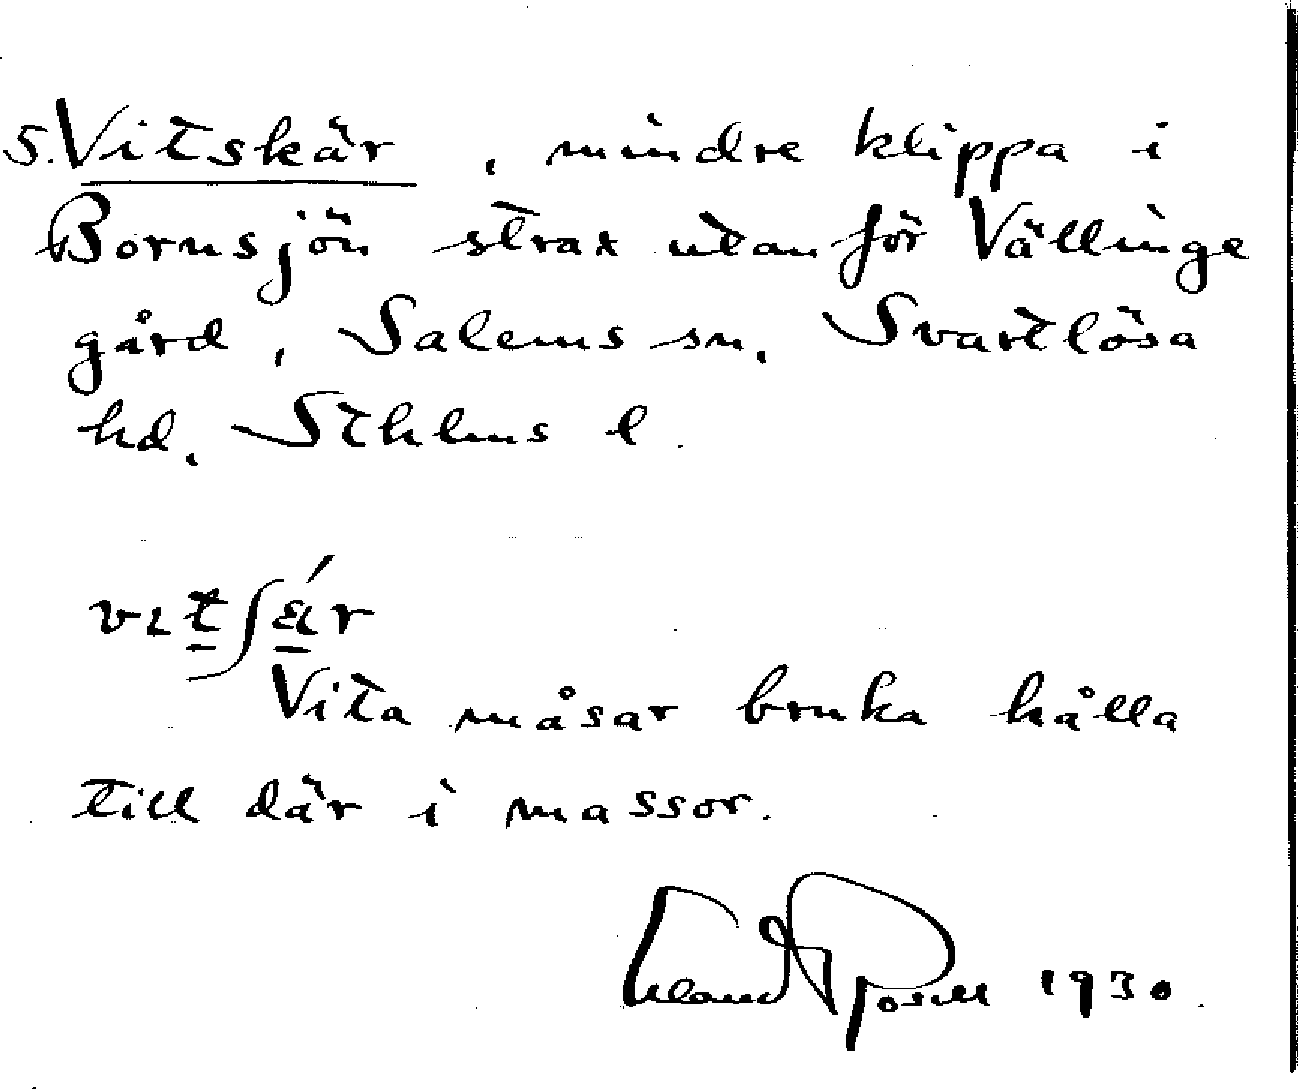 5. Vitskär, mindre klippa i
Bornsjön strax utanför Vällinge
gård, Salems sn, Svartlösa
hd, Sthlms l.
Vita måsar bruka hålla
till där i massor.
Erland Rosell 1930.